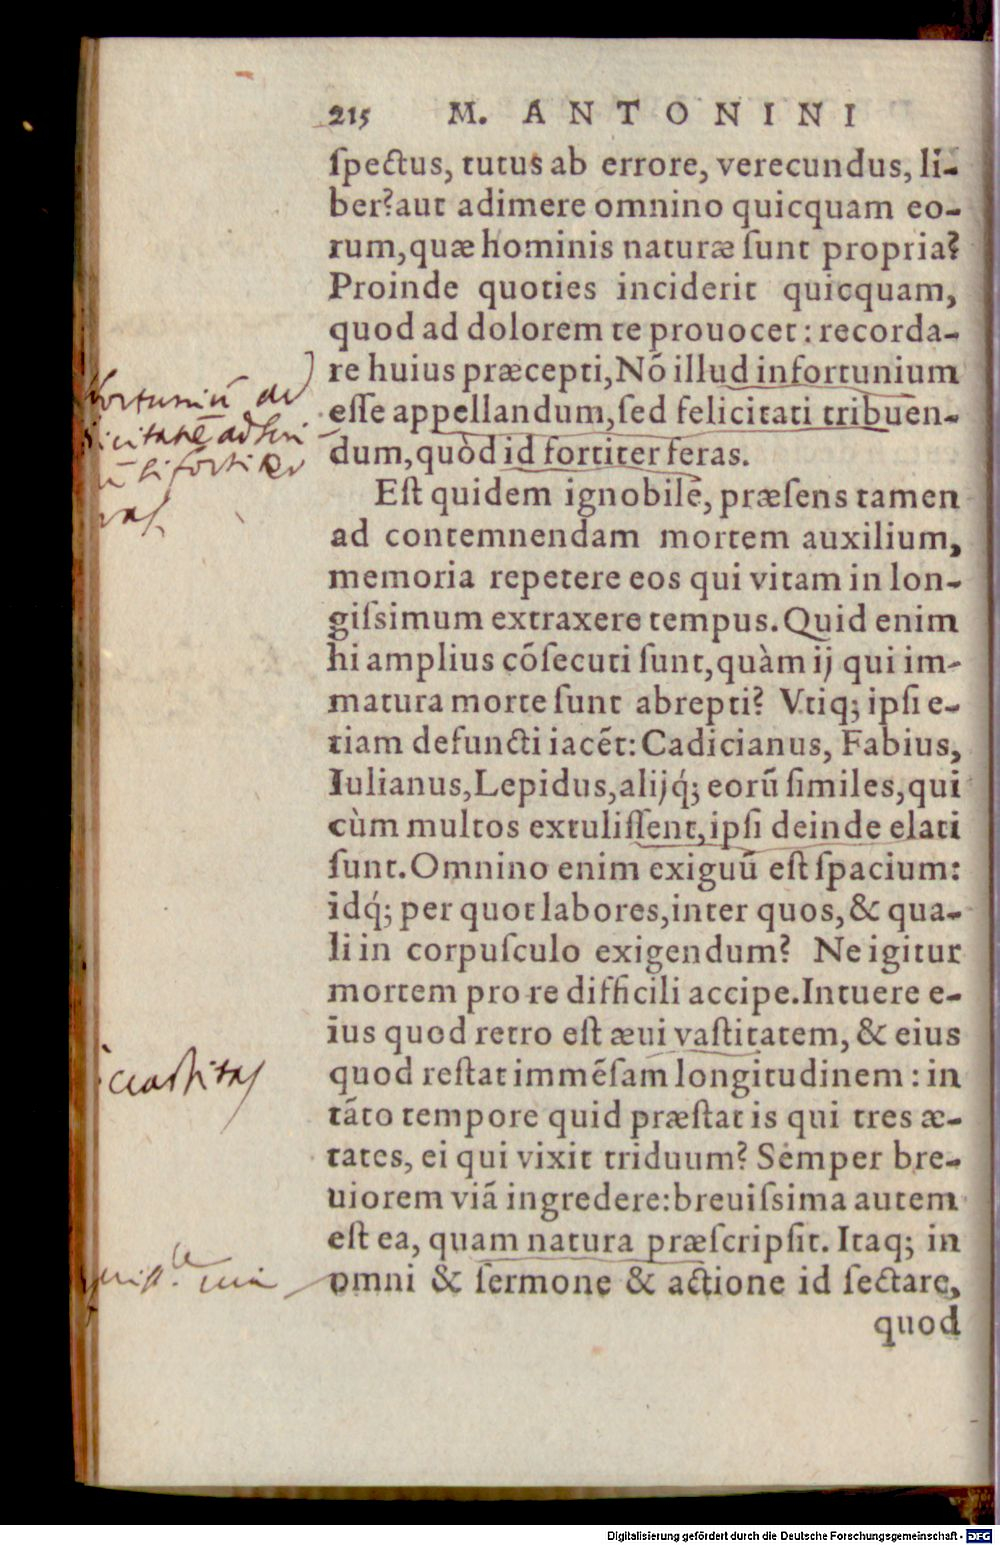 215 M. ANTONINI
ſpectus, tutus ab errore, verecundus, li-
ber? aut adimere omnino quicquam eo-
rum, quæ hominis naturæ ſunt propria?
Proinde quoties inciderit quicquam,
quod ad dolorem te prouocet: recorda-
re huius præcepti, Nõ illud infortunium
eſſe appellandum, ſed felicitati tribuen-
dum, quòd id fortiter feras.
Eſt quidem ignobile, præſens tamen
ad contemnendam mortem auxilium,
memoria repetere eos qui vitam in lon-
giſsimum extraxere tempus. Quid enim
hi amplius cõſecuti ſunt, quàm ij qui im-
matura morte ſunt abrepti? Vtiq; ipſi e-
tiam defuncti iacẽt: Cadicianus, Fabius,
Iulianus, Lepidus, alijq́; eorũ ſimiles, qui
cùm multos extuliſſent, ipſi deinde elati
ſunt. Omnino enim exiguũ eſt ſpacium:
idq́; per quot labores, inter quos, & qua-
li in corpuſculo exigendum? Ne igitur
mortem pro re difficili accipe. Intuere e-
ius quod retro eſt æui vaſtitatem, & eius
quod reſtat immẽſam longitudinem: in
tãto tempore quid præſtat is qui tres æ-
tates, ei qui vixit triduum? Semper bre-
uiorem viã ingredere: breuiſsima autem
eſt ea, quam natura præſcripſit. Itaq; in
omni & ſermone & actione id ſectare,
quod
fortuniũ ad
icitatẽ adſcri
ſi fortiter
vastitas
Digitalisierung gefördert durch die Deutsche Forschungsgemeinschaft - DFG